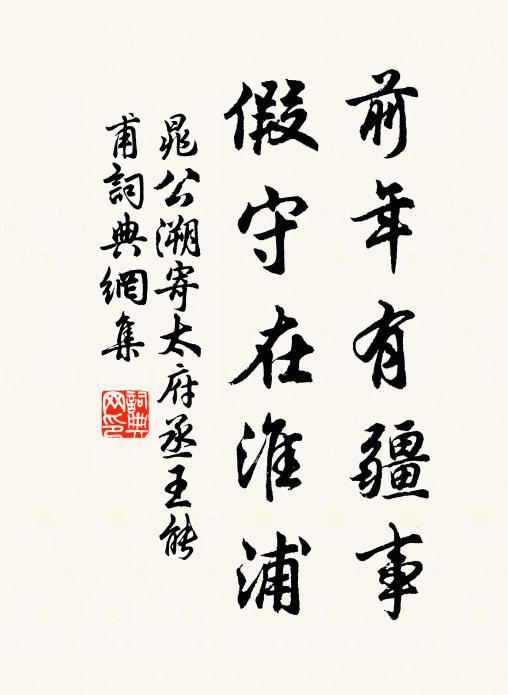 前年有疆事
假守在淮浦
晁公溯寄太府丞王能
甫詞典網集
詞典
网印